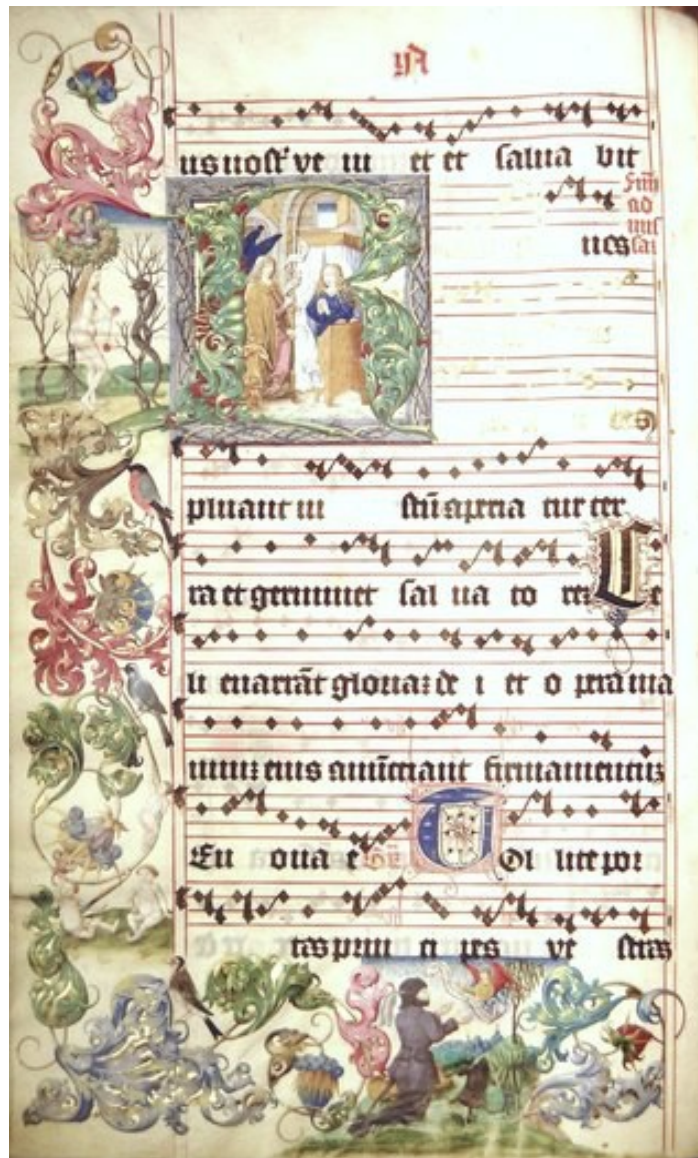 us nost' ve ni et et salua bit
nes
pluant iu stū aperia tur ter
ra et germinet sal ua to rē C e
li enarrāt gloriaz de i et o pera ma
nuuz eius annūciant firmamentuz
Eu oua e Tol lite por
tas prin ci pes ve stras